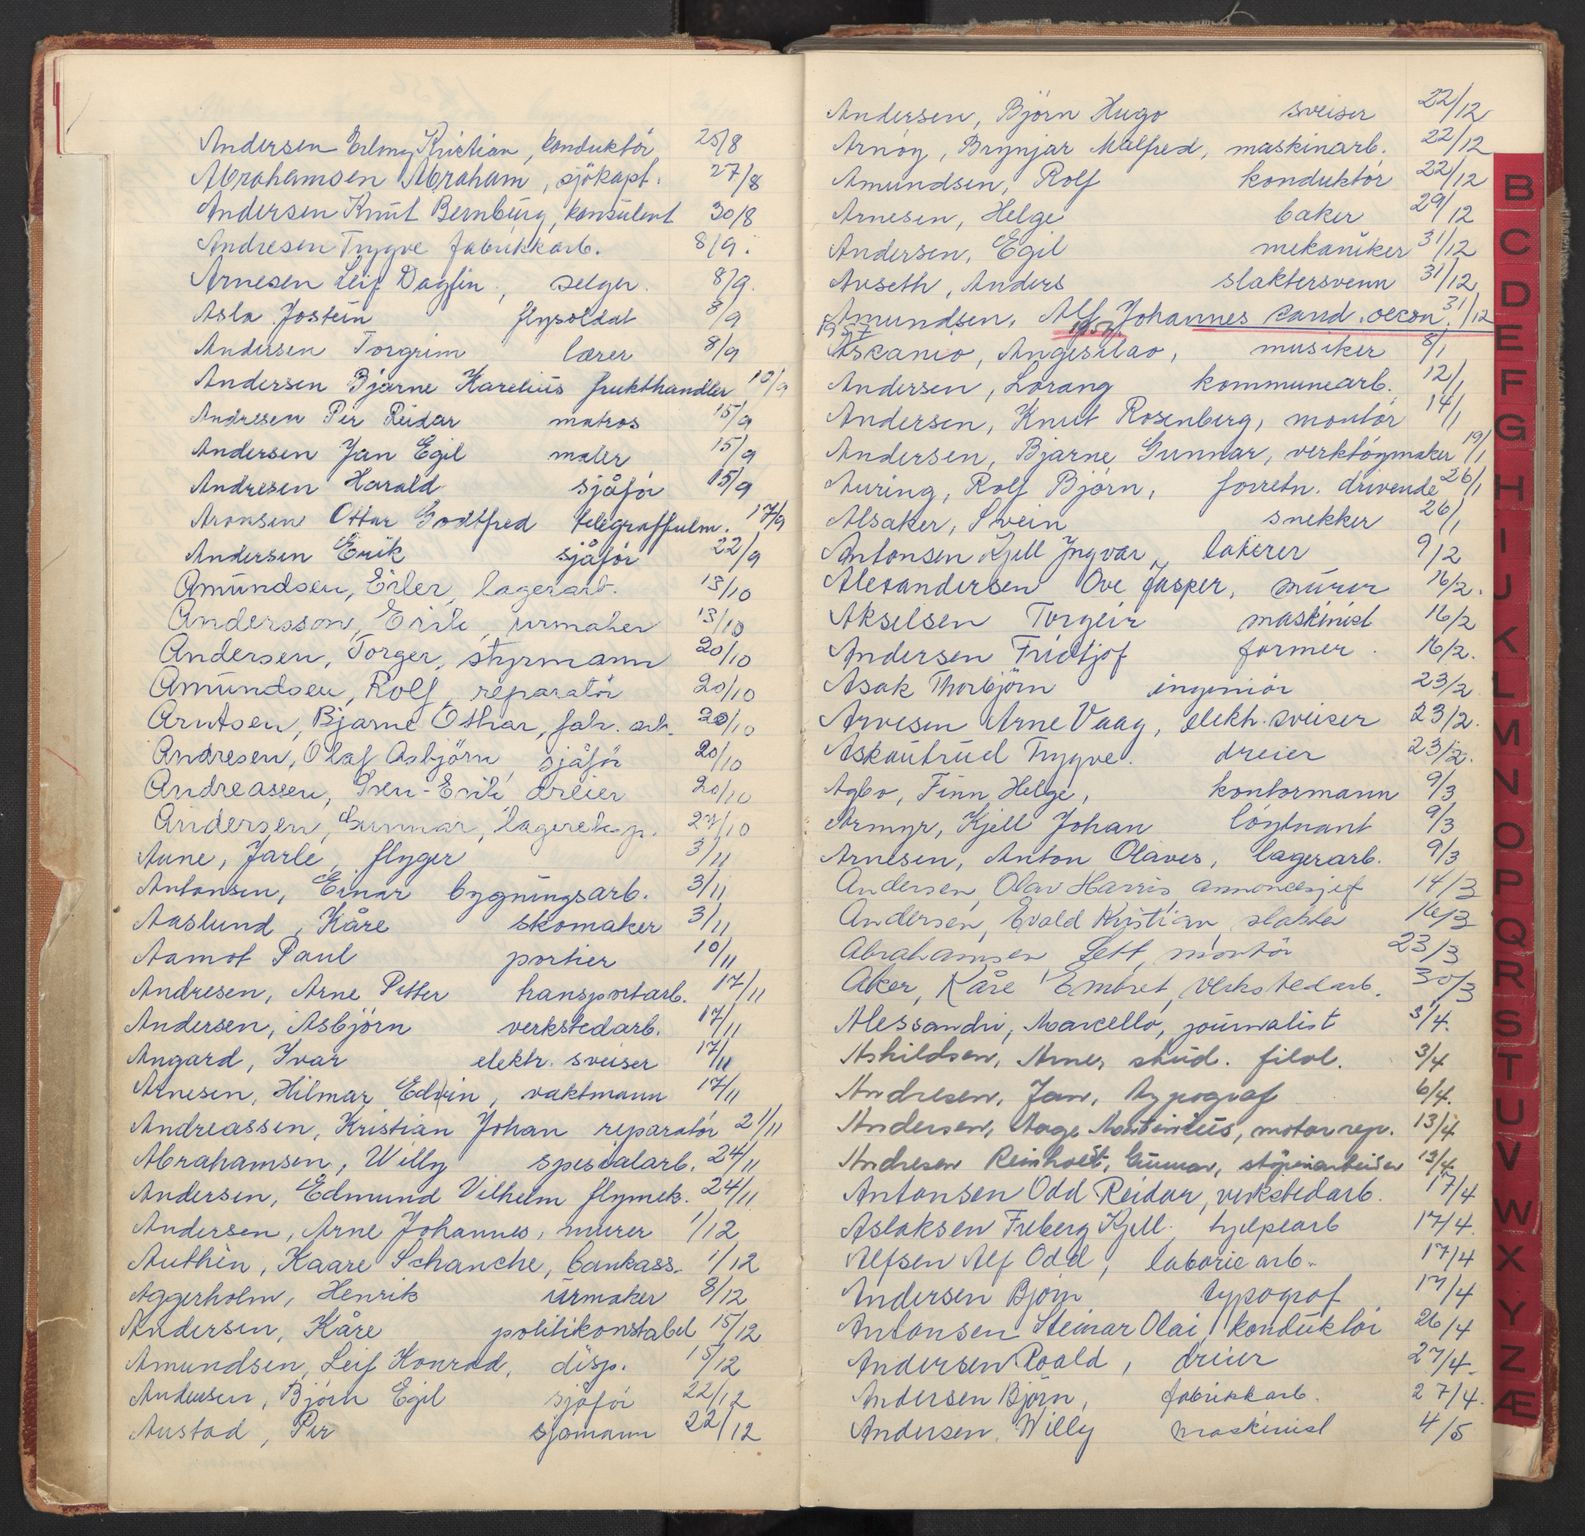 Andersen Erling Kristian, konduktör 25/8
Abrahamsen Abraham, sjökapt. 27/8
Andersen Knut Bernburg, konsulent 30/8
Andresen Trygve fabrikkarb. 8/9.
Arnesen Leif Dagfin, selger. 8/9.
Asla Jostein flysoldat 8/9
Andersen Torgrim lærer 8/9
Andersen Bjarne Karelius frukthandler 10/9
Andresen Per Reidar matros 15/9
Andersen Jan Egil maler 15/9
Andresen Harald sjåför 15/9
Aronsen Ottar Godtfred telegraffulm. 17/9
Andersen Erik sjåför 22/9
Amundsen, Erler, lagerarb. 13/10
Andersson, Erik, urmaker 13/10
Andersen, Torger, styrmann 20/10
Amundsen, Rolf, reparatör 20/10
Arntsen, Bjarne Othar, fabr. arb. 20/10
Andresen, Olaf Asbjörn, sjåför 20/10
Andreassen, Sven-Erik, dreier 20/10
Andersen, Gunnar, lagereksp. 27/10
Aune, Jarle, flyger 3/11
Antonsen, Einar bygningsarb. 3/11
Aaslund, Kåre skomaker 3/11
Aamot Paul portier 10/11
Andresen, Arne Petter transportarb. 17/11
Andersen, Asbjörn verkstedarb. 17/11
Angard, Ivar elektr. sveiser 17/11
Arnesen, Hilmar Edvin, vaktmann 17/11
Andreassen, Kristian Johan reparatör 21/11
Abrahamsen, Willy spesialarb. 24/11
Andersen, Edmund Vilhelm flymek. 24/11
Andersen, Arne Johannes, murer 1/12
Authén, Kaare Schanche, bankass. 1/12
Aggerholm, Henrik urmaker 8/12
Andersen, Kåre politikonstabel 15/12
Amundsen, Leif Konrad, disp. 15/12
Andersen, Björn Egil sjåför 22/12
Austad, Per sjömann 22/12
Andersen, Björn Hugo sveiser 22/12
Arnöy, Brynjar Malfred, maskinarb. 22/12
Amundsen, Rolf konduktör 22/12
Arnesen, Helge baker 29/12
Andersen, Egil mekaniker 31/12
Avseth, Anders slaktersvenn 31/12
Amundsen, Alf Johannes cand. oecon. 31/12
1957 1957
Ascanio, Angesilao, musiker 8/1
Andersen, Lorang kommunearb. 12/1
Andersen, Knut Rosenberg, montör 14/1
Andersen, Bjarne Gunnar, verktöymaker 19/1
Auring, Rolf Björn, forretn. drivende 26/1
Alsaker, Svein snekker 26/1
Antonsen Kjell Yngvar, lakerer 9/2
Alexandersen Ove Jasper, murer 16/2.
Akselsen Torgeir maskinist 16/2
Andersen Fridtjof former. 16/2.
Asak Thorbjörn ingeniör 23/2
Arvesen Arne Vaag, elektr. sveiser 23/2.
Askautrud Trygve. dreier 23/2.
Agbo, Finn Helge, kontormann 9/3
Armyr, Kjell Johan löytnant 9/3
Arnesen, Anton Olaves, lagerarb. 9/3
Andersen, Olav Harris, annoncesjef 14/3
Andersen, Evald Kristian, slakter 16/3
Abrahamsen Sett, montör 23/3
Aker, Kåre Embret, verkstedarb. 30/3
Alessandri, Marcello, journalist 3/4.
Ashildsen, Arne, stud. filol. 3/4
Andresen, Jan, typograf 6/4.
Andersen, Aage Martinius, motorrep. 13/4
Andresen Reinholt, Gunnar, stöperiarbeider 13/4
Antonsen Odd Reidar, verkstedarb. 17/4
Aslaksen Freberg Kjell, hjelpearb 17/4.
Alfsen Alf Odd, laborie arb. 17/4
Andersen Björn typograf 17/4
Antonsen Steinar Olai, konduktör 26/4
Andersen Roald, dreier 27/4.
Andersen Björn, fabrikkarb. 27/4.
Andersen, Willy maskinist 4/5
B
C
D
E
F
G
H
I
J
K
L
M
N
O
P
Q
R
S
T
U
V
W
X
Y
Z
Æ